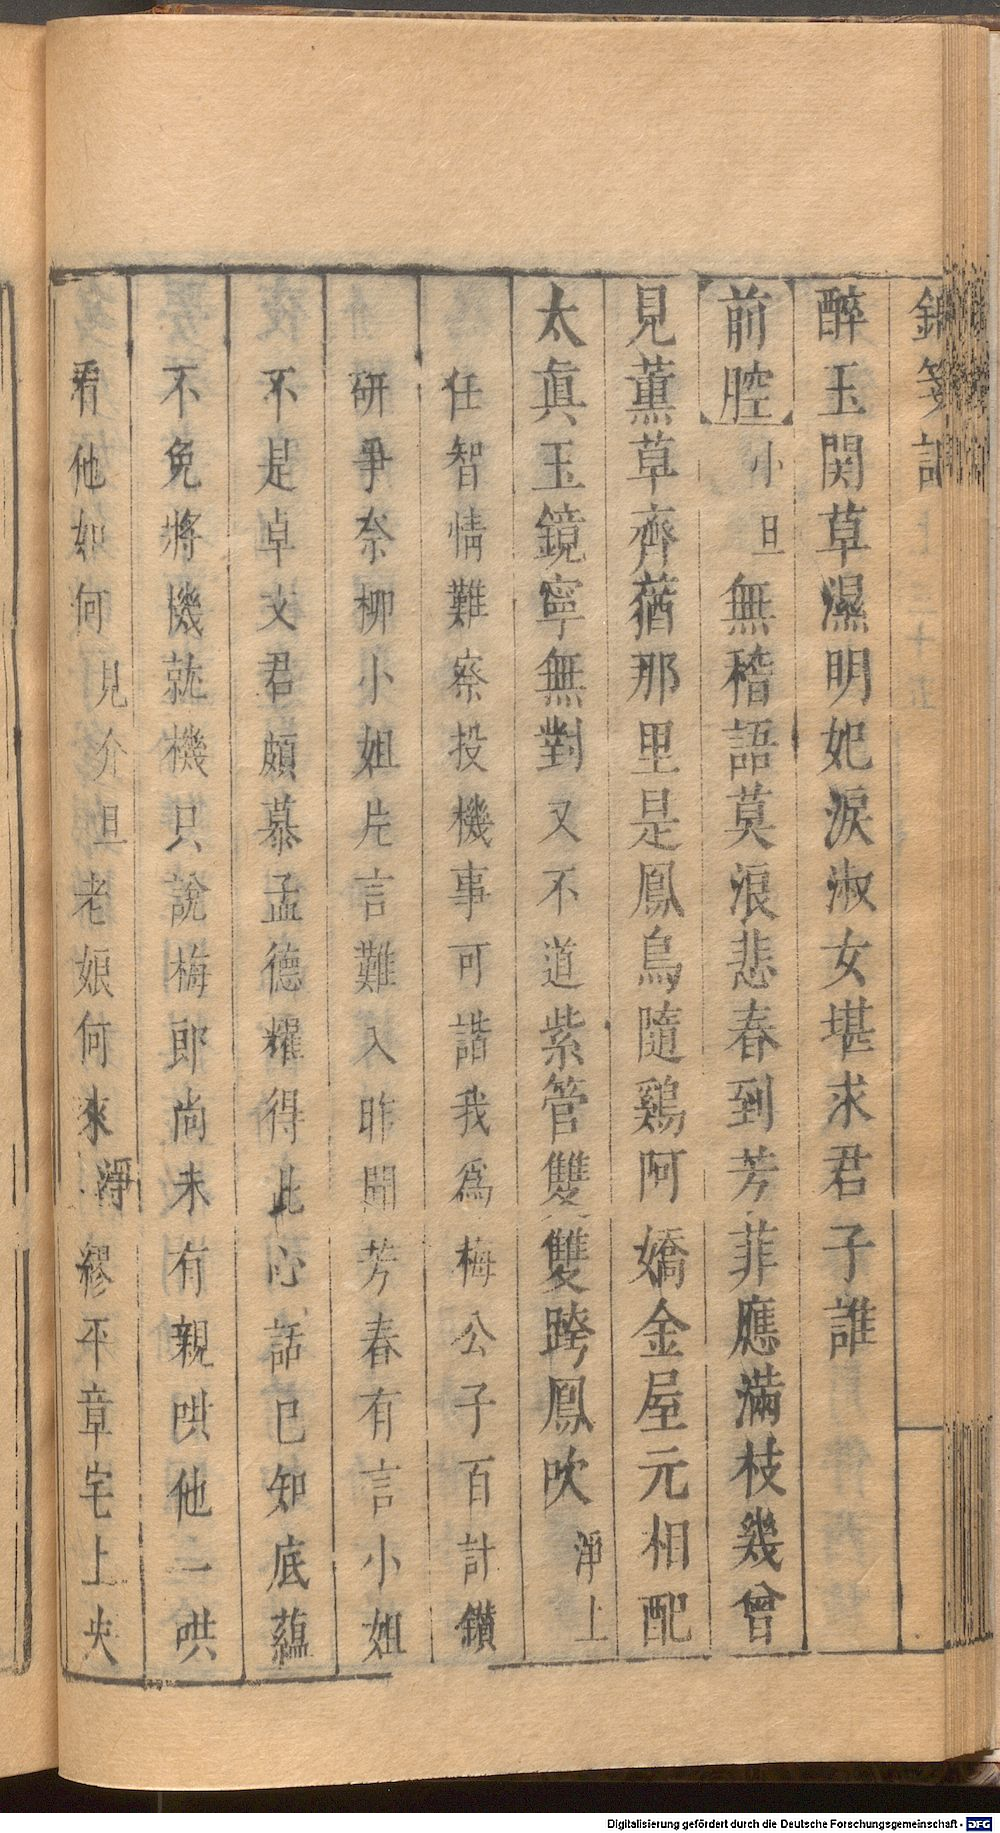 錦箋記 上 三十五
醉玉関草濕明妃淚淑女堪求君子誰
前腔 小旦 無稽語莫浪悲春到芳菲應滿枝幾曾
見薰草齊蕕那里是鳳烏隨鷄阿嬌金屋元相配
太眞玉鏡寧無對又不道紫管雙雙跨鳳吹 淨上
任智情難察投機事可諧我爲梅公子百計鑽
研爭奈柳小姐片言難入昨聞芳春有言小姐
不是卓文君頗慕孟德耀得此心話已知底蘊
不免將機就機只說梅郎尚未有親哄他一哄
看他如何 見介 旦 老娘何來 淨 繆平章宅上央
Digitalisierung gefördert durch die Deutsche Forschungsgemeinschaft - DFG